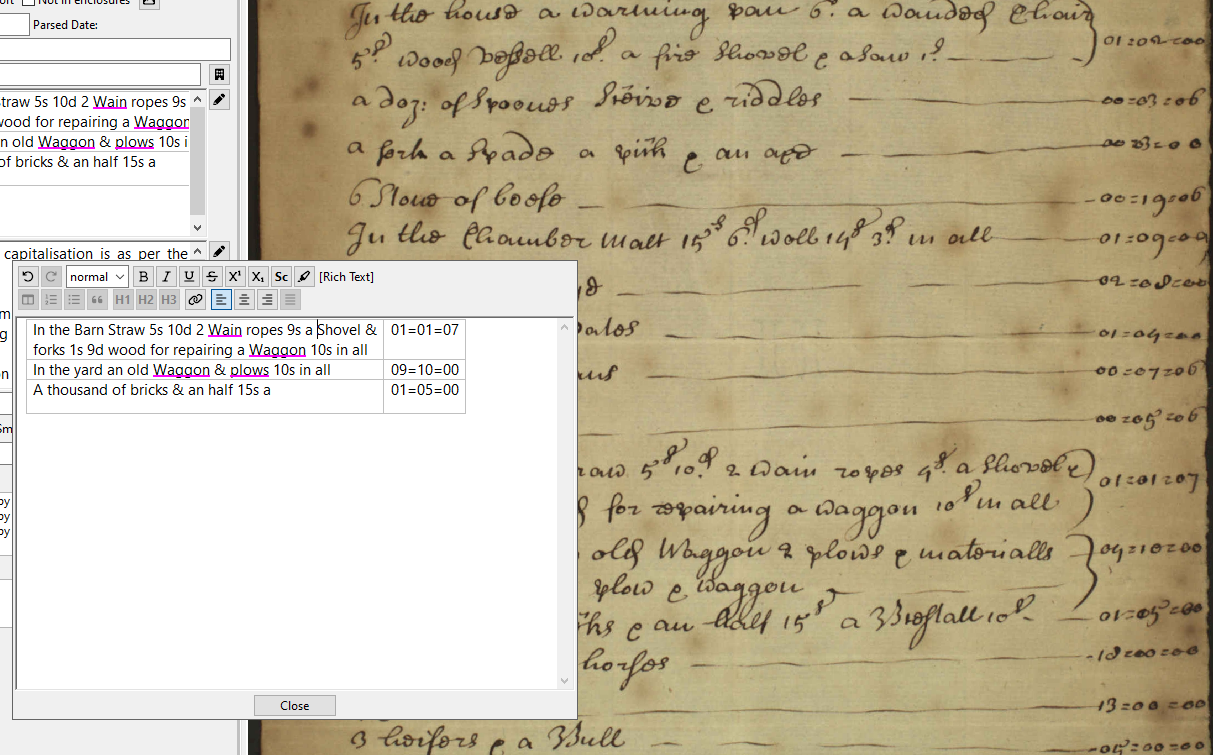 Not in enclosures
Parsed Date:
Straw 5s 10d 2 Wain ropes 9s
wood for repairing a Waggon
n old Waggon & plows 10s i
of bricks & an half 15s a
capitalisation is as per the
normal
B I U S X¹ X₁ Sc [Rich Text]
H1 H2 H3
In the Barn Straw 5s 10d 2 Wain ropes 9s a Shovel & 01=01=07
forks 1s 9d wood for repairing a Waggon 10s in all
In the yard an old Waggon & plows 10s in all 09=10=00
A thousand of bricks & an half 15s a 01=05=00
Close
In the house a warming pan 6s. a wanded Chair
5s wood Vessell 10s a fire shovel & a saw 1s 01=02=00
a doz: of Spoones Seive & riddles 00=03=06
a fork a Spade a pick & an axe 00=03=00
6 Stone of beefe 00=19=06
In the Chamber Malt 15s 6d woll 14s 3d in all 01=09=09
02=08=00
01=04=00
00=07=06
00=05=06
raw 5s 10d 2 Wain ropes 4s. a Shovel &
for repairing a waggon 10s in all 01=01=07
old Waggon 2 plows & materialls 09=10=00
plow & waggon
ks & an half 15s a 10s 01=05=00
horses 18=00=00
13=00=00
3 heifers & a Bull 05=00=00